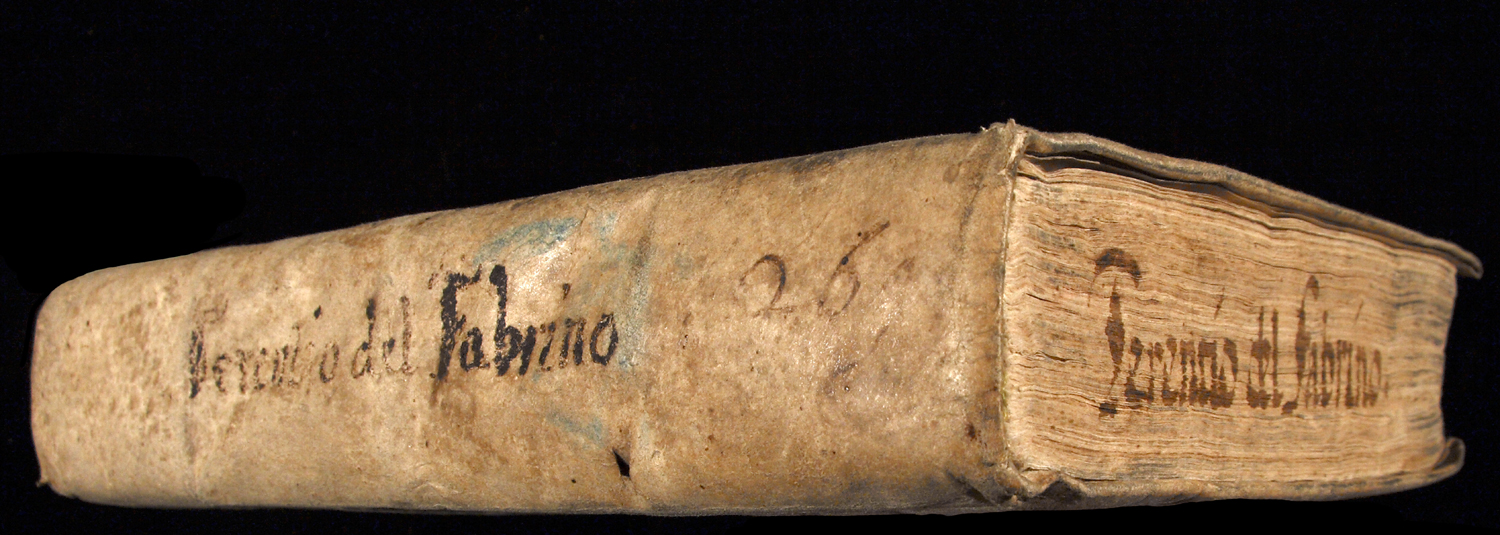 Terentio del Fabrino
26
Terentio del Fabrino.